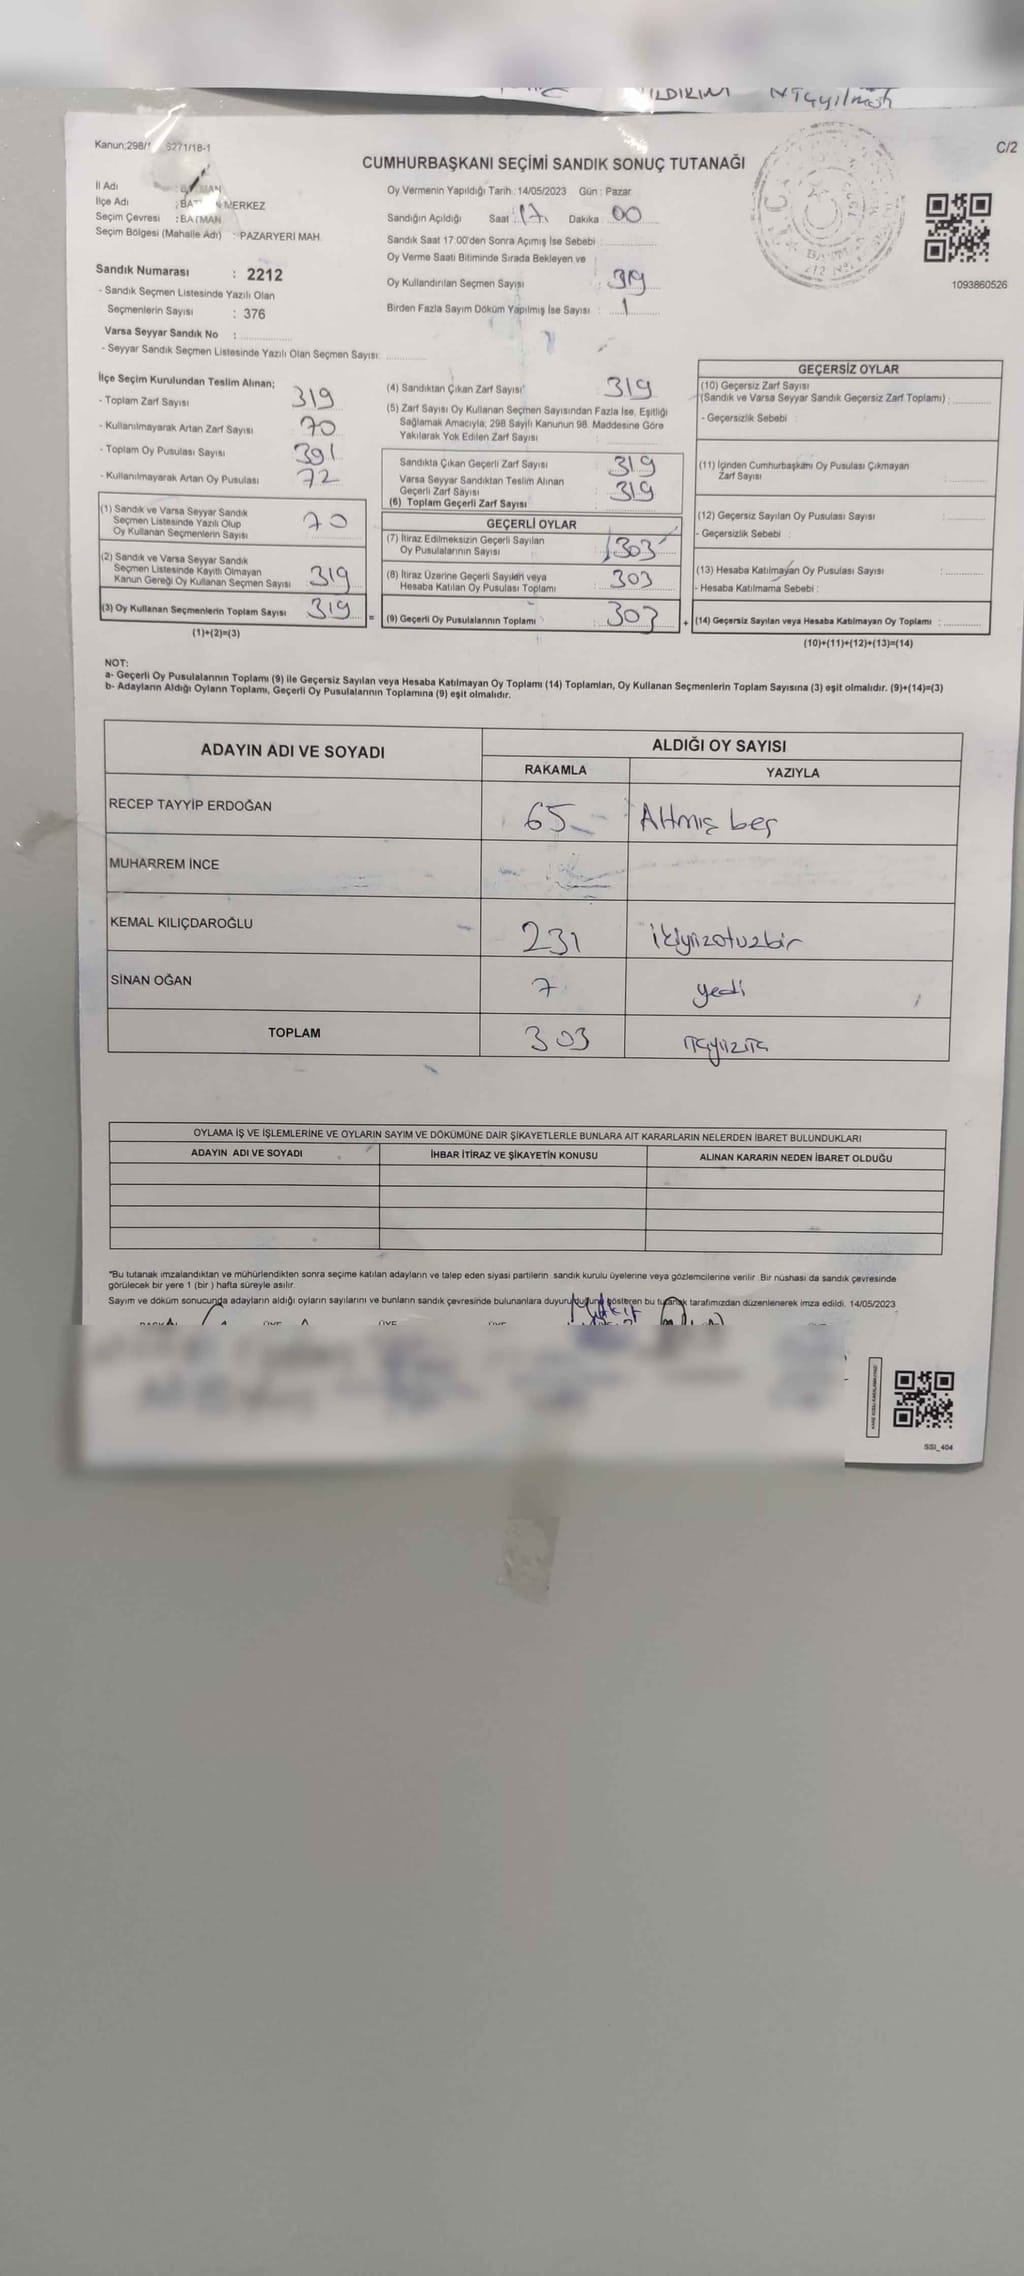 Kanun;298/ S271/18-1
C/2
CUMHURBAŞKANI SEÇİMİ SANDIK SONUÇ TUTANAĞI
İl Adı : BATMAN
İlçe Adı : BATMAN MERKEZ
Seçim Çevresi : BATMAN
Seçim Bölgesi (Mahalle Adı) : PAZARYERİ MAH.
Oy Vermenin Yapıldığı Tarih : 14/05/2023 Gün : Pazar
Sandığın Açıldığı Saat : 17 Dakika : 00
Sandık Saat 17:00'den Sonra Açımış İse Sebebi :
Oy Verme Saati Bitiminde Sırada Bekleyen ve
Oy Kullandırılan Seçmen Sayısı : 319
Birden Fazla Sayım Döküm Yapılmış İse Sayısı : 1
1093860526
Sandık Numarası : 2212
- Sandık Seçmen Listesinde Yazılı Olan
Seçmenlerin Sayısı : 376
Varsa Seyyar Sandık No :
- Seyyar Sandık Seçmen Listesinde Yazılı Olan Seçmen Sayısı:
İlçe Seçim Kurulundan Teslim Alınan;
- Toplam Zarf Sayısı 319
- Kullanılmayarak Artan Zarf Sayısı : 70
- Toplam Oy Pusulası Sayısı : 391
- Kullanılmayarak Artan Oy Pusulası : 72
(1) Sandık ve Varsa Seyyar Sandık
Seçmen Listesinde Yazılı Olup
Oy Kullanan Seçmenlerin Sayısı : 70
(2) Sandık ve Varsa Seyyar Sandık
Seçmen Listesinde Kayıtlı Olmayan
Kanun Gereği Oy Kullanan Seçmen Sayısı : 319
(3) Oy Kullanan Seçmenlerin Toplam Sayısı : 319 =
(1)+(2)=(3)
(4) Sandıktan Çıkan Zarf Sayısı 319
(5) Zarf Sayısı Oy Kullanan Seçmen Sayısından Fazla İse, Eşitliği
Sağlamak Amacıyla; 298 Sayılı Kanunun 98. Maddesine Göre
Yakılarak Yok Edilen Zarf Sayısı :
Sandıkta Çıkan Geçerli Zarf Sayısı : 319
Varsa Seyyar Sandıktan Teslim Alınan
Geçerli Zarf Sayısı : 319
(6) Toplam Geçerli Zarf Sayısı :
GEÇERLİ OYLAR
(7) İtiraz Edilmeksizin Geçerli Sayılan
Oy Pusulalarının Sayısı : 303
(8) İtiraz Üzerine Geçerli Sayılan veya
Hesaba Katılan Oy Pusulası Toplamı : 303
(9) Geçerli Oy Pusulalarının Toplamı : 303 +
GEÇERSİZ OYLAR
(10) Geçersiz Zarf Sayısı
(Sandık ve Varsa Seyyar Sandık Geçersiz Zarf Toplamı) :
- Geçersizlik Sebebi :
(11) İçinden Cumhurbaşkanı Oy Pusulası Çıkmayan
Zarf Sayısı :
(12) Geçersiz Sayılan Oy Pusulası Sayısı :
- Geçersizlik Sebebi :
(13) Hesaba Katılmayan Oy Pusulası Sayısı :
- Hesaba Katılmama Sebebi :
(14) Geçersiz Sayılan veya Hesaba Katılmayan Oy Toplamı :
(10)+(11)+(12)+(13)=(14)
NOT:
a- Geçerli Oy Pusulalarının Toplamı (9) ile Geçersiz Sayılan veya Hesaba Katılmayan Oy Toplamı (14) Toplamları, Oy Kullanan Seçmenlerin Toplam Sayısına (3) eşit olmalıdır. (9)+(14)=(3)
b- Adayların Aldığı Oyların Toplamı, Geçerli Oy Pusulalarının Toplamına (9) eşit olmalıdır.
ADAYIN ADI VE SOYADI
ALDIĞI OY SAYISI
RAKAMLA YAZIYLA
RECEP TAYYİP ERDOĞAN 65 Altmış beş
MUHARREM İNCE
KEMAL KILIÇDAROĞLU 231 ikiyüzotuzbir
SİNAN OĞAN 7 yedi
TOPLAM 303 üçyüzüç
OYLAMA İŞ VE İŞLEMLERİNE VE OYLARIN SAYIM VE DÖKÜMÜNE DAİR ŞİKAYETLERLE BUNLARA AİT KARARLARIN NELERDEN İBARET BULUNDUKLARI
ADAYIN ADI VE SOYADI İHBAR İTİRAZ VE ŞİKAYETİN KONUSU ALINAN KARARIN NEDEN İBARET OLDUĞU
*Bu tutanak imzalandıktan ve mühürlendikten sonra seçime katılan adayların ve talep eden siyasi partilerin sandık kurulu üyelerine veya gözlemcilerine verilir. Bir nüshası da sandık çevresinde
görülecek bir yere 1 (bir ) hafta süreyle asılır.
Sayım ve döküm sonucunda adayların aldığı oyların sayılarını ve bunların sandık çevresinde bulunanlara duyurulduğunu gösteren bu tutanak tarafımızdan düzenlenerek imza edildi. 14/05/2023
SSI_404